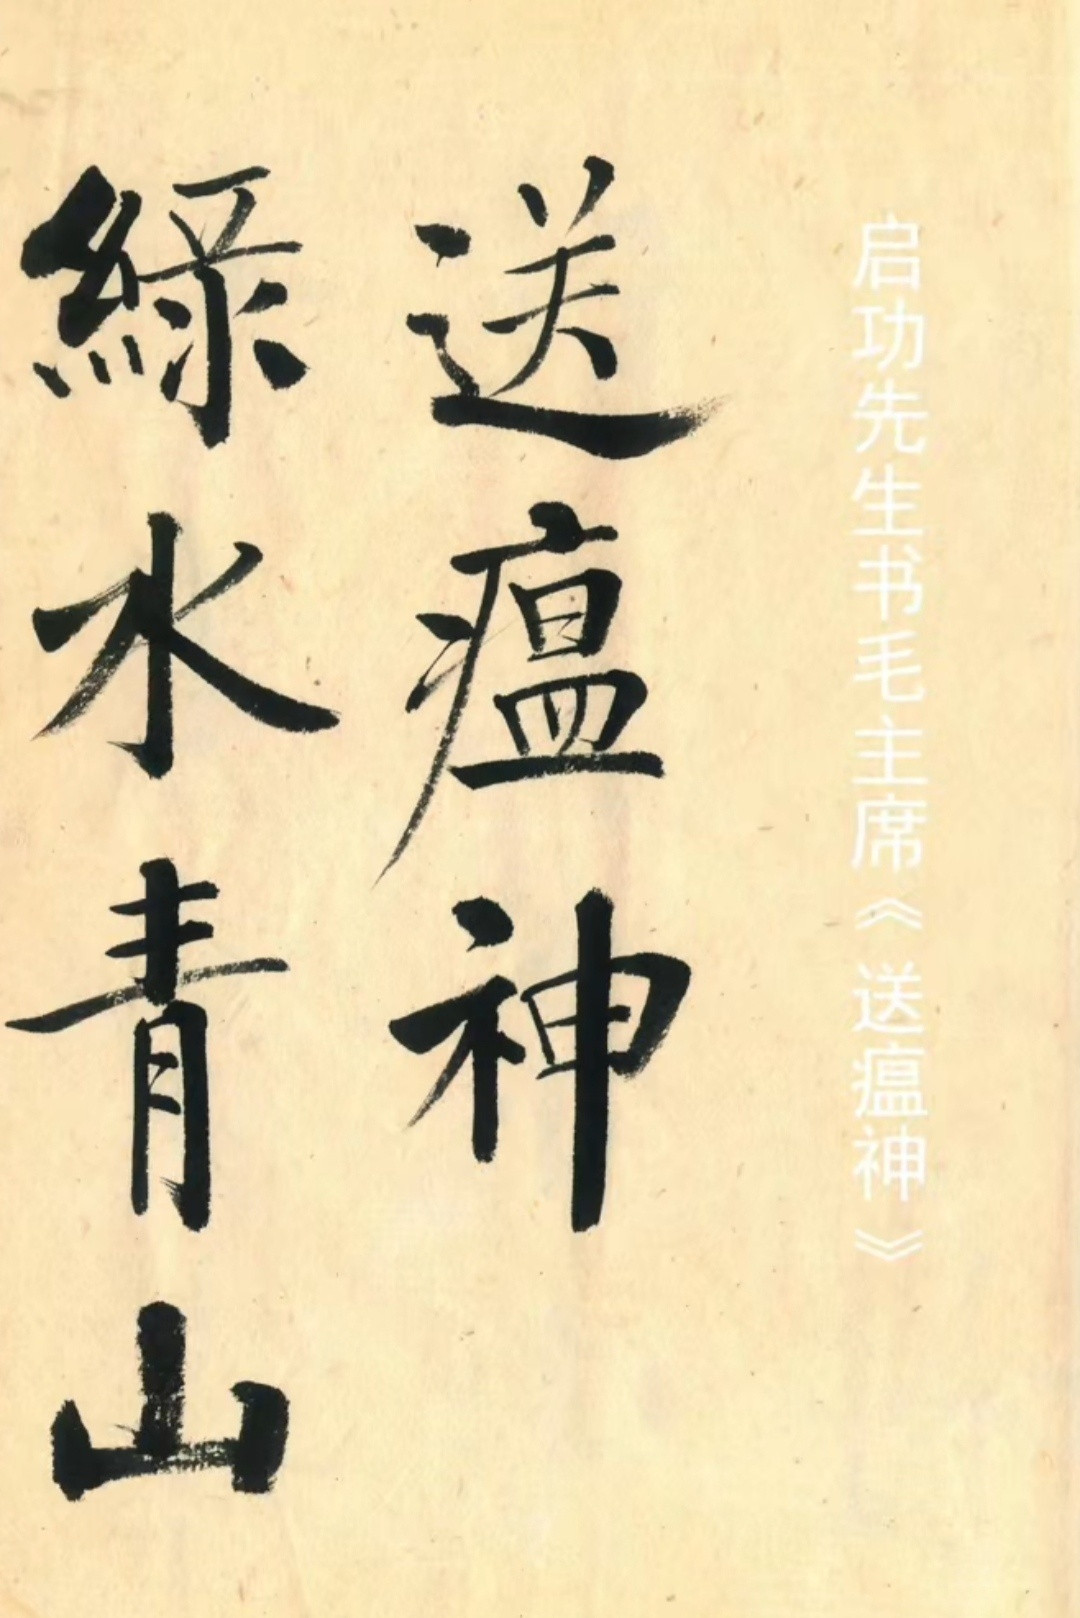 启功先生书毛主席《送瘟神》
送瘟神
綠水青山